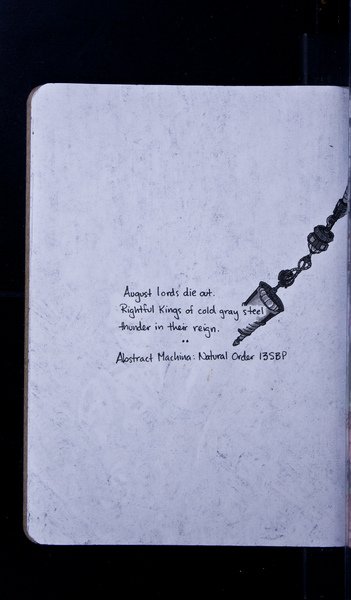 August lords die out.
Rightful Kings of cold gray steel
thunder in their reign.
Abstract Machina: Natural Order 13SBP